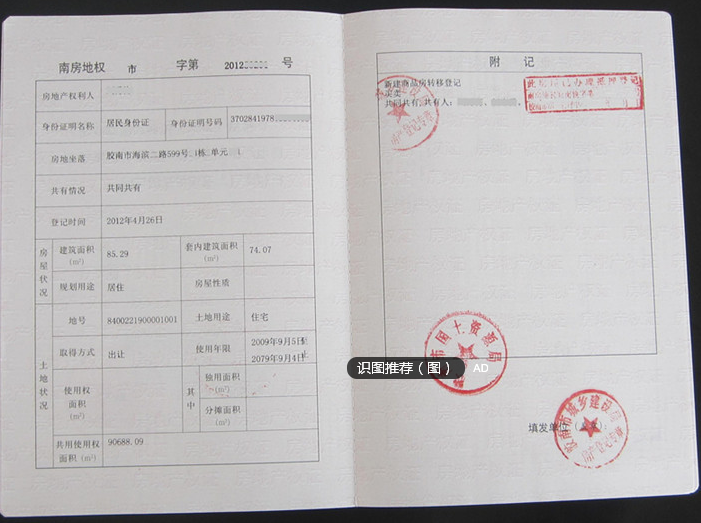 南房地权 市 字第 2012 号
房地产权利人
身份证明名称 居民身份证 身份证明号码 3702841978
房地坐落 胶南市海滨二路599号 栋 单元
共有情况 共同共有
登记时间 2012年4月26日
房屋状况
建筑面积(m²) 85.29 套内建筑面积(m²) 74.07
规划用途 居住 房屋性质
土地状况
地号 8400221900001001 土地用途 住宅
取得方式 出让 使用年限 2009年9月5日至
2079年9月4日止
使用权面积(m²) 其中 独用面积(m²)
分摊面积(m²)
共用使用权面积(m²) 90688.09
附 记
新建商品房转移登记
买卖
共同共有,共有人:
国土资源局
填发单位
胶南市城乡建设局
识图推荐(图) AD